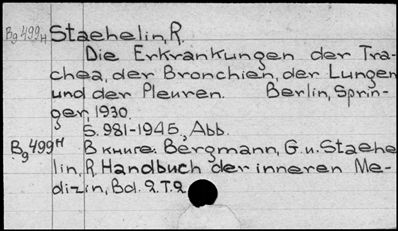 Bg 499н Staehelin, R.
Die Erkrankungen der Tra-
chea, der Bronchien, der Lungen
und der Pleuren. Berlin, Sprin-
ger, 1930.
S. 981-1945, Abb.
Bg 499н В книге: Bergmann, G. u. Staehe
lin, R. Handbuch der inneren Me-
dizin, Bd. 2. T. 2